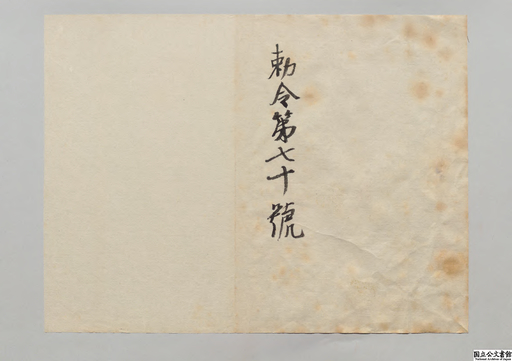 勅令第七十號
国立公文書館
National Archives of Japan